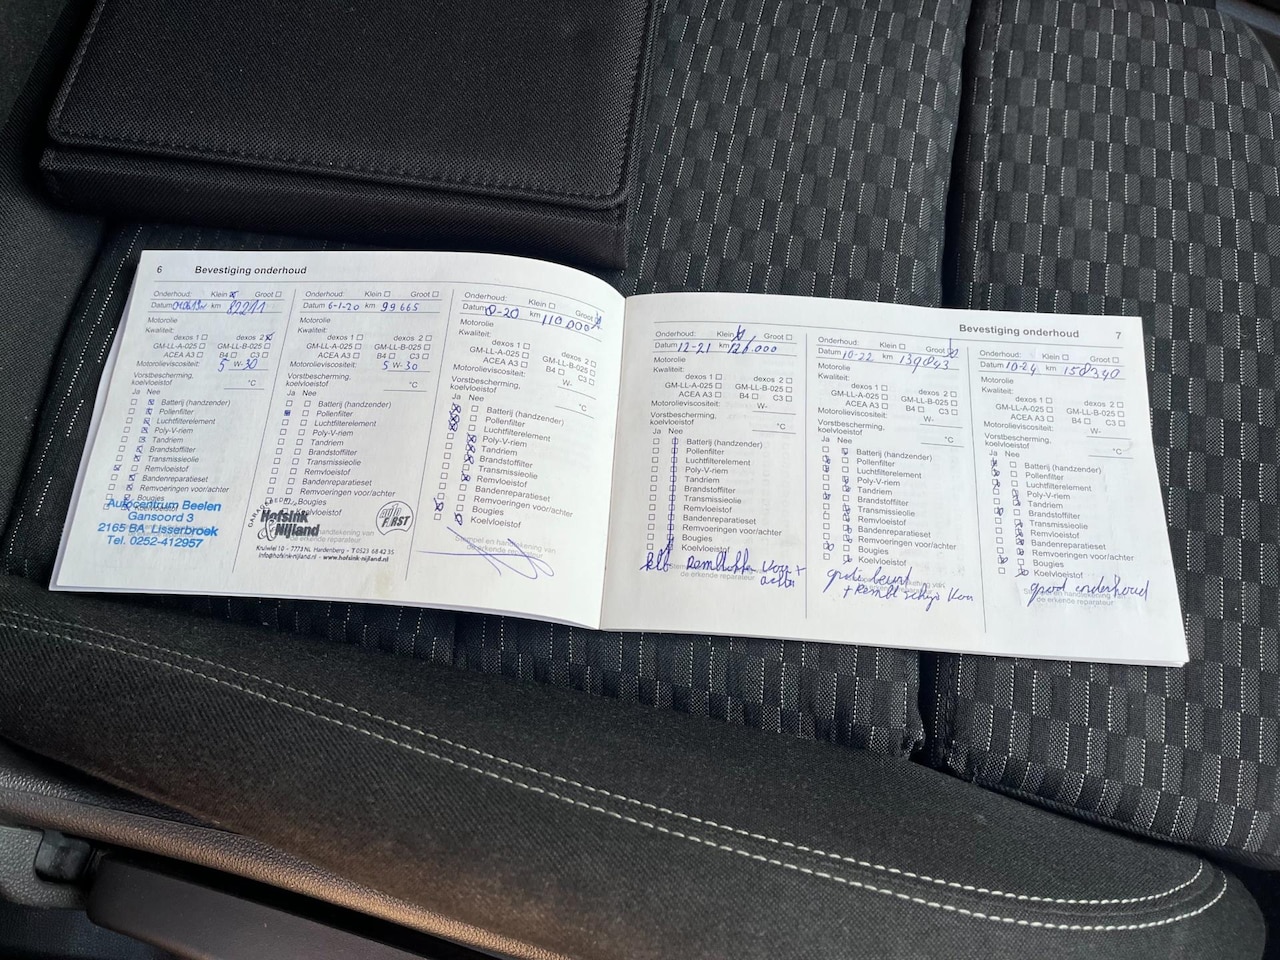 6 Bevestiging onderhoud
Onderhoud: Klein Groot
Datum km 82211
Motorolie
Kwaliteit:
dexos 1 dexos 2
GM-LL-A-025 GM-LL-B-025
ACEA A3 B4 C3
Motorolieviscositeit: 5 W- 30
Vorstbescherming,
koelvloeistof °C
Ja Nee
Batterij (handzender)
Pollenfilter
Luchtfilterelement
Poly-V-riem
Tandriem
Brandstoffilter
Transmissieolie
Remvloeistof
Bandenreparatieset
Remvoeringen voor/achter
Bougies
Koelvloeistof
Autocentrum Beelen
Gansoord 3
2165 BA Lisserbroek
Tel. 0252-412957
Onderhoud: Klein Groot
Datum 6-1-20 km 99665
Motorolie
Kwaliteit:
dexos 1 dexos 2
GM-LL-A-025 GM-LL-B-025
ACEA A3 B4 C3
Motorolieviscositeit: 5 W- 30
Vorstbescherming,
koelvloeistof °C
Ja Nee
Batterij (handzender)
Pollenfilter
Luchtfilterelement
Poly-V-riem
Tandriem
Brandstoffilter
Transmissieolie
Remvloeistof
Bandenreparatieset
Remvoeringen voor/achter
Bougies
Koelvloeistof
GARAGEBEDRIJF
Hofsink
& Nijland
auto FIRST
Kruiwiel 10 - 7773 NL Hardenberg - T 0523 68 42 35
info@hofsink-nijland.nl - www.hofsink-nijland.nl
Onderhoud: Klein Groot
Datum 8-20 km 110.000
Motorolie
Kwaliteit:
dexos 1 dexos 2
GM-LL-A-025 GM-LL-B-025
ACEA A3 B4 C3
Motorolieviscositeit: W-
Vorstbescherming,
koelvloeistof °C
Ja Nee
Batterij (handzender)
Pollenfilter
Luchtfilterelement
Poly-V-riem
Tandriem
Brandstoffilter
Transmissieolie
Remvloeistof
Bandenreparatieset
Remvoeringen voor/achter
Bougies
Koelvloeistof
Stempel en handtekening van
de erkende reparateur
Bevestiging onderhoud 7
Onderhoud: Klein Groot
Datum 12-21 km
Motorolie
Kwaliteit:
dexos 1 dexos 2
GM-LL-A-025 GM-LL-B-025
ACEA A3 B4 C3
Motorolieviscositeit: W-
Vorstbescherming,
koelvloeistof °C
Ja Nee
Batterij (handzender)
Pollenfilter
Luchtfilterelement
Poly-V-riem
Tandriem
Brandstoffilter
Transmissieolie
Remvloeistof
Bandenreparatieset
Remvoeringen voor/achter
Bougies
Koelvloeistof
Remblokken voor +
achter
de erkende reparateur
Onderhoud: Klein Groot
Datum 10-22 km 139043
Motorolie
Kwaliteit:
dexos 1 dexos 2
GM-LL-A-025 GM-LL-B-025
ACEA A3 B4 C3
Motorolieviscositeit: W-
Vorstbescherming,
koelvloeistof °C
Ja Nee
Batterij (handzender)
Pollenfilter
Luchtfilterelement
Poly-V-riem
Tandriem
Brandstoffilter
Transmissieolie
Remvloeistof
Bandenreparatieset
Remvoeringen voor/achter
Bougies
Koelvloeistof
grote beurt
+ Rembl schijf Voor
de erkende reparateur
Onderhoud: Klein Groot
Datum 10-24 km 158340
Motorolie
Kwaliteit:
dexos 1 dexos 2
GM-LL-A-025 GM-LL-B-025
ACEA A3 B4 C3
Motorolieviscositeit: W-
Vorstbescherming,
koelvloeistof °C
Ja Nee
Batterij (handzender)
Pollenfilter
Luchtfilterelement
Poly-V-riem
Tandriem
Brandstoffilter
Transmissieolie
Remvloeistof
Bandenreparatieset
Remvoeringen voor/achter
Bougies
Koelvloeistof
groot onderhoud
Stempel en handtekening van
de erkende reparateur